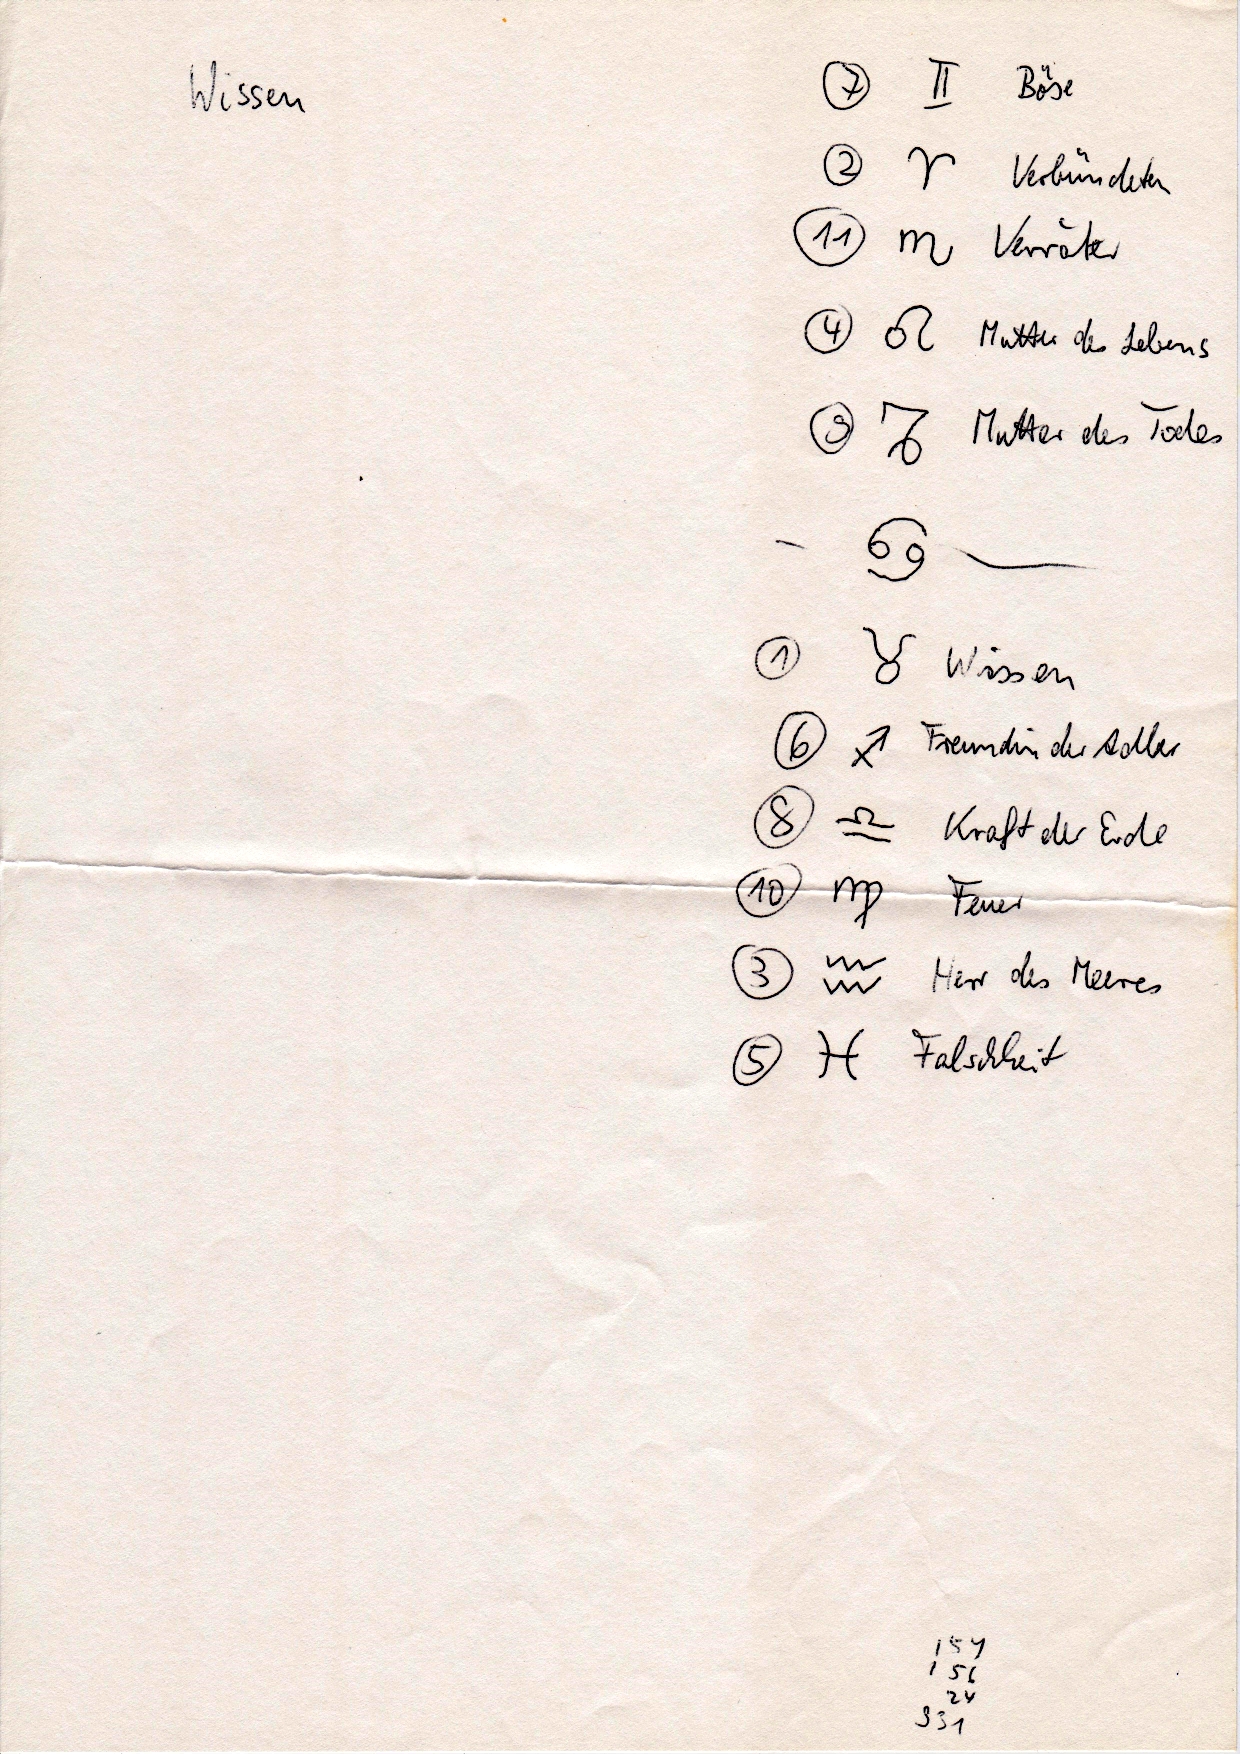 Wissen
7 ♊ Böse
2 ♈ Verbündeten
11 ♏ Verräter
4 ♌ Mutter des Lebens
9 ♑ Mutter des Todes
- ♋ —
1 ♉ Wissen
6 ♐ Freundin der Adler
8 ♎ Kraft der Erde
10 ♍ Feuer
3 ♒ Herr des Meeres
5 ♓ Falschheit
156
24
331